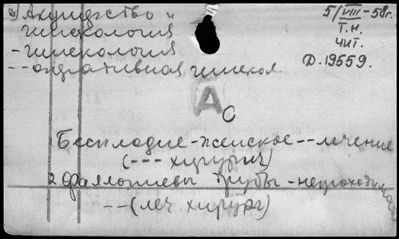 Акушерство и
гинекология
- гинекология
-- оперативная гинекол
5/VIII-58г.
Т.н.
чит.
Д.19559.
А
С
1 Бесплодие - женское -- лечение
(--- хирургич)
2 Фаллопиевы трубы - непроходимость
-- (леч. хирург)